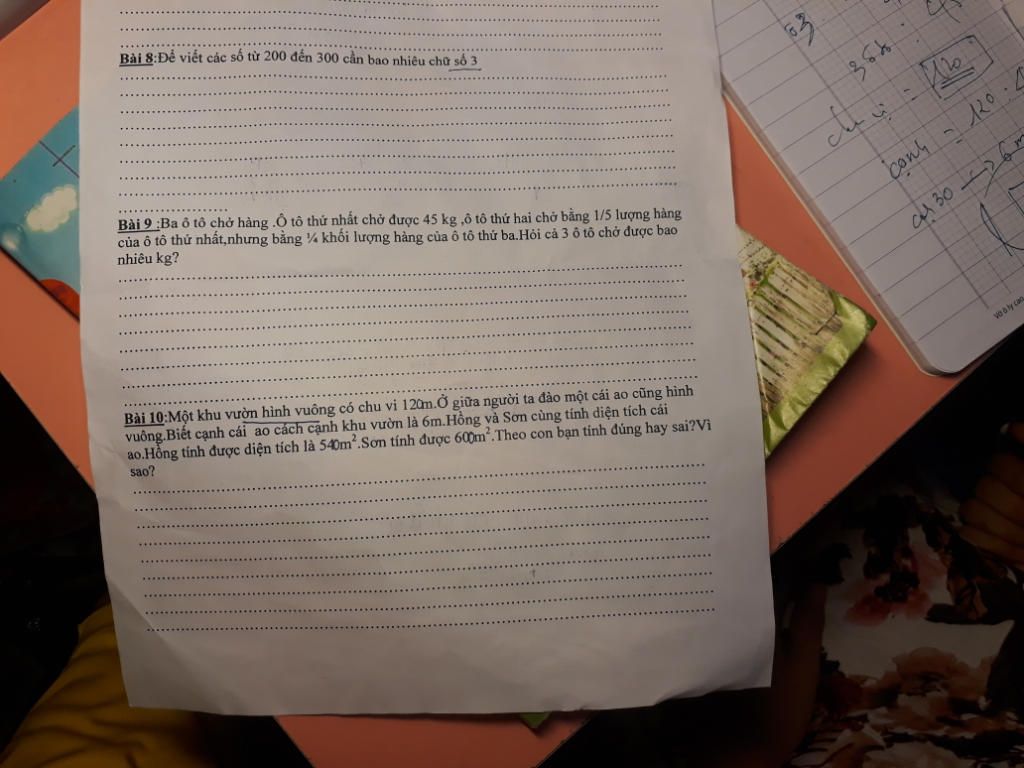 Bài 8:Để viết các số từ 200 đến 300 cần bao nhiêu chữ số 3
Bài 9 :Ba ô tô chở hàng .Ô tô thứ nhất chở được 45 kg ,ô tô thứ hai chở bằng 1/5 lượng hàng
của ô tô thứ nhất,nhưng bằng ¼ khối lượng hàng của ô tô thứ ba.Hỏi cả 3 ô tô chở được bao
nhiêu kg?
Bài 10:Một khu vườn hình vuông có chu vi 120m.Ở giữa người ta đào một cái ao cũng hình
vuông.Biết cạnh cái ao cách cạnh khu vườn là 6m.Hồng và Sơn cùng tính diện tích cái
ao.Hồng tính được diện tích là 540m².Sơn tính được 600m².Theo con bạn tính đúng hay sai?Vì
sao?
63
368
chu vi = 120
cạnh = 120